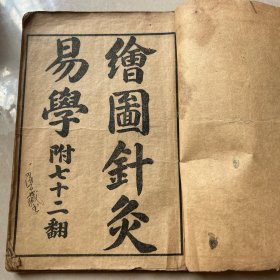 繪圖針灸
易學附七十二翻